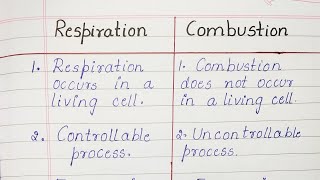 Respiration Combustion
1. Respiration occurs in a living cell.
1. Combustion does not occur in a living cell.
2. Controllable process.
2. Uncontrollable process.